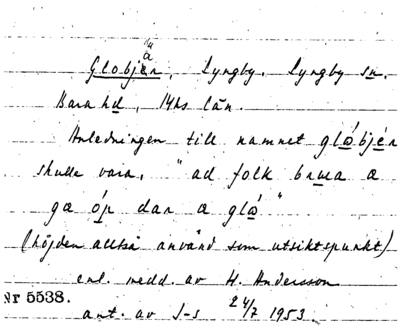 Globjär, Lyngby. Lyngby sn.
Bara hd, Mhs län.
Anledningen till namnet glǻbjér
skulle vara, "ad folk brua a
gæ óp dar a glǻ"
(höjden alltså använd som utsiktspunkt)
enl. medd. av H. Andersson
Nr 5538.
ant. av J-s 24/7 1953.